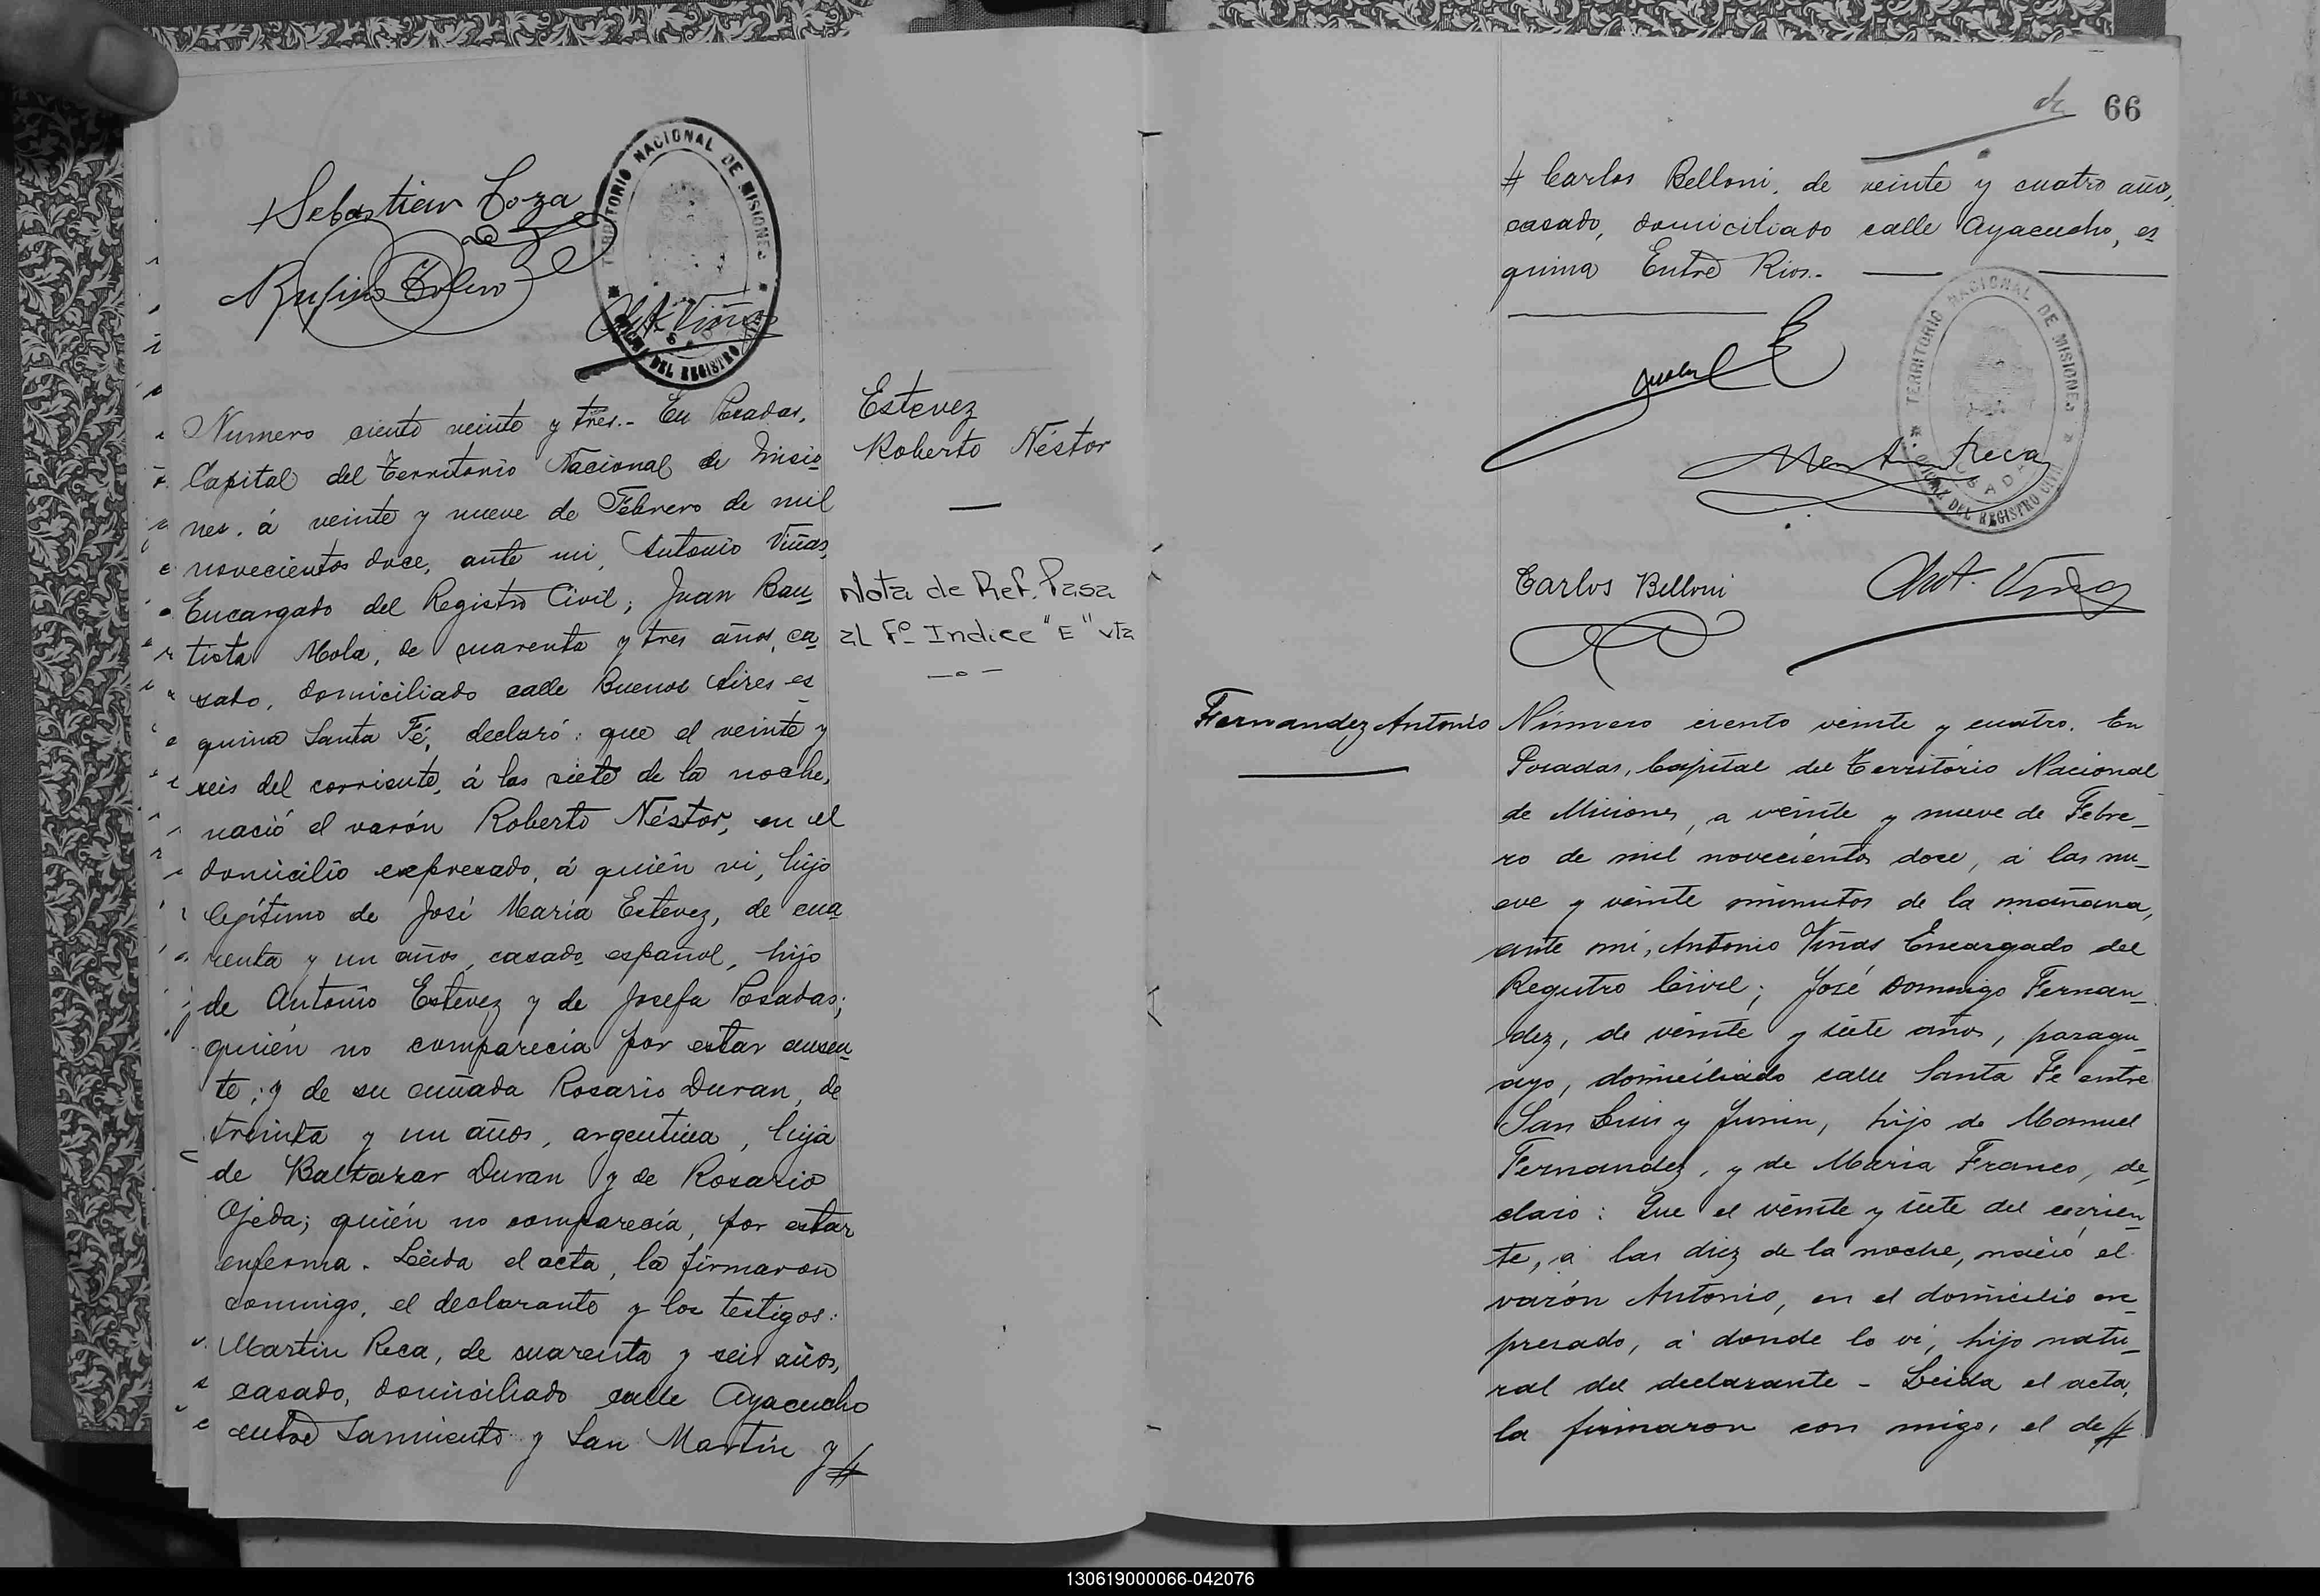 Sebastian Loza
TERRITORIO NACIONAL DE MISIONES
DEL REGISTRO
Numero ciento veinte y tres.- En Posadas,
Capital del Territorio Nacional de Misio
nes. á veinte y nueve de Febrero de mil
novecientos doce, ante mi, Antonio Viñas,
Encargado del Registro Civil; Juan Bau
tista Mola, de cuarenta y tres años, ca
sado, domiciliado calle Buenos Aires es
quina Santa Fé, declaró: que el veinte y
seis del corriente, á las siete de la noche,
nació el varón Roberto Néstor, en el
domicilio expresado, á quién vi, hijo
legítimo de José Maria Estevez, de cua
renta y un años, casado español, hijo
de Antonio Estevez y de Josefa Posadas;
quién no comparecia por estar ausen
te; y de su cuñada Rosario Duran, de
treinta y un años, argentina, hija
de Baltazar Duran y de Rosario
Ojeda; quién no comparecía, por estar
enferma. Leida el acta, la firmaron
conmigo, el declarante y los testigos:
Martin Reca, de cuarenta y seis años,
casado, domiciliado calle Ayacucho
entre Sarmiento y San Martín y #
Estevez
Roberto Néstor
Nota de Ref. Pasa
al Fº Indice "E" vta
66
# Carlos Belloni, de veinte y cuatro años,
casado, domiciliado calle Ayacucho, es
quina Entre Rios.-
TERRITORIO NACIONAL DE MISIONES
DEL REGISTRO CIVIL
Martin Reca
Carlos Belloni
Ant. Viñas
Fernandez Antonio
Número ciento veinte y cuatro. En
Posadas, Capital del Território Nacional
de Misiones, a veinte y nueve de Febre_
ro de mil novecientos doce, á las nu_
eve y veinte minutos de la mañana,
ante mi, Antonio Viñas Encargado del
Registro Civil; José Domingo Fernan_
dez, de veinte y siete años, paragu_
ayo, domiciliado calle Santa Fe entre
San Luis y Junin, hijo de Manuel
Fernandez, y de Maria Franco, de_
claró: Que el veinte y siete del corrien_
te, á las diez de la noche, nació el
varón Antonio, en el domicilio ex_
presado, á donde lo vi, hijo natu_
ral del declarante - Leida el acta,
la firmaron con migo, el de#
130619000066-042076